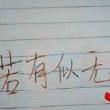 若有似无